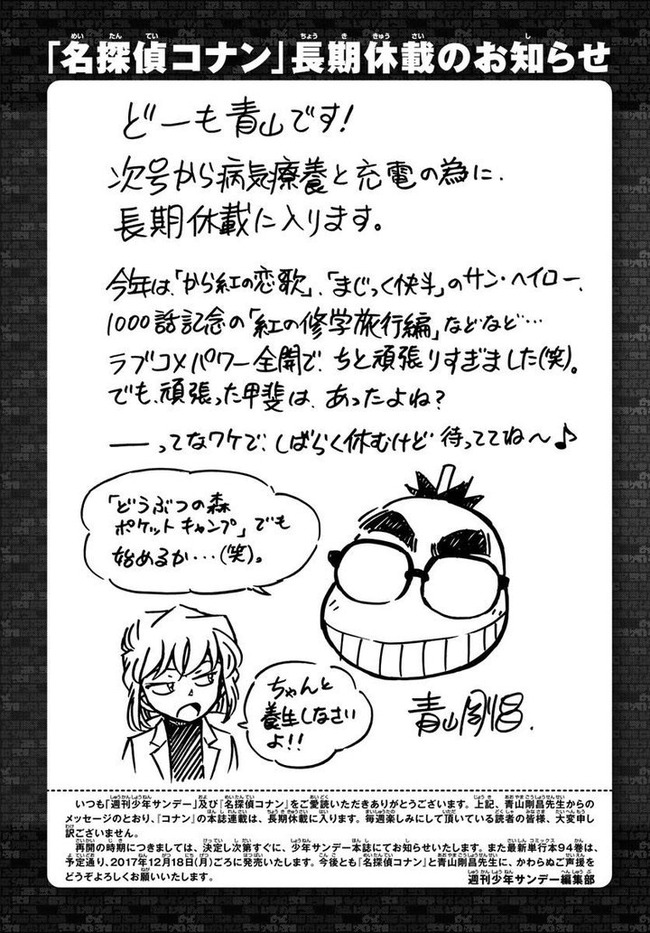 「名探偵コナン」長期休載のお知らせ
どーも青山です!
次号から病気療養と充電の為に、
長期休載に入ります。
今年は、「から紅の恋歌」、「まじっく快斗」のサン・ヘイロー、
1000話記念の「紅の修学旅行編」などなど…
ラブコメパワー全開で、ちと頑張りすぎました(笑)。
でも、頑張った甲斐は、あったよね?
――ってなワケで、しばらく休むけど、待っててね〜♪
「どうぶつの森
ポケットキャンプ」でも
始めるか…(笑)。
ちゃんと
養生しなさい
よ!!
青山剛昌.
いつも「週刊少年サンデー」及び『名探偵コナン』をご愛読いただきありがとうございます。上記、青山剛昌先生からの
メッセージのとおり、『コナン』の本誌連載は、長期休載に入ります。毎週楽しみにして頂いている読者の皆様、大変申し
訳ございません。
再開の時期につきましては、決定し次第すぐに、少年サンデー本誌にてお知らせいたします。また最新単行本94巻は、
予定通り、2017年12月18日(月)ごろに発売いたします。今後とも『名探偵コナン』と青山剛昌先生に、かわらぬご声援を
どうぞよろしくお願いいたします。
週刊少年サンデー編集部